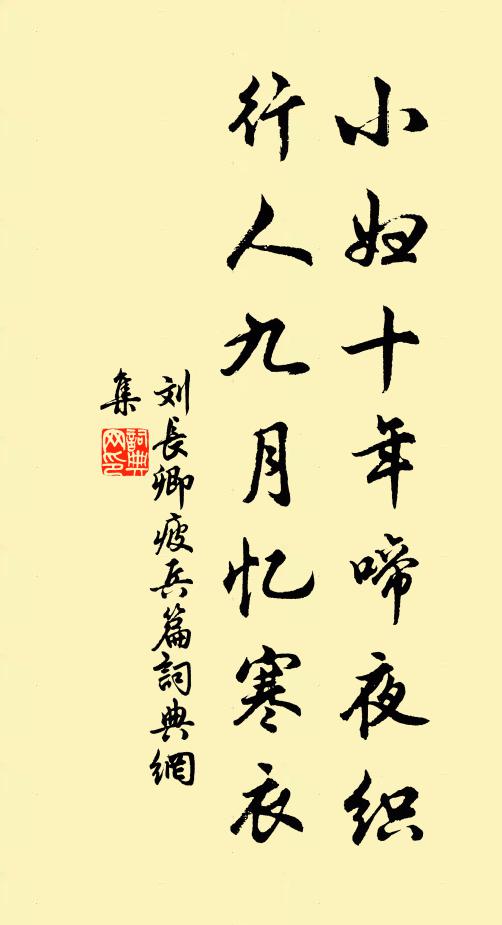 小妇十年啼夜织
行人九月忆寒衣
刘長卿疲兵篇詞典網
集
詞典网印